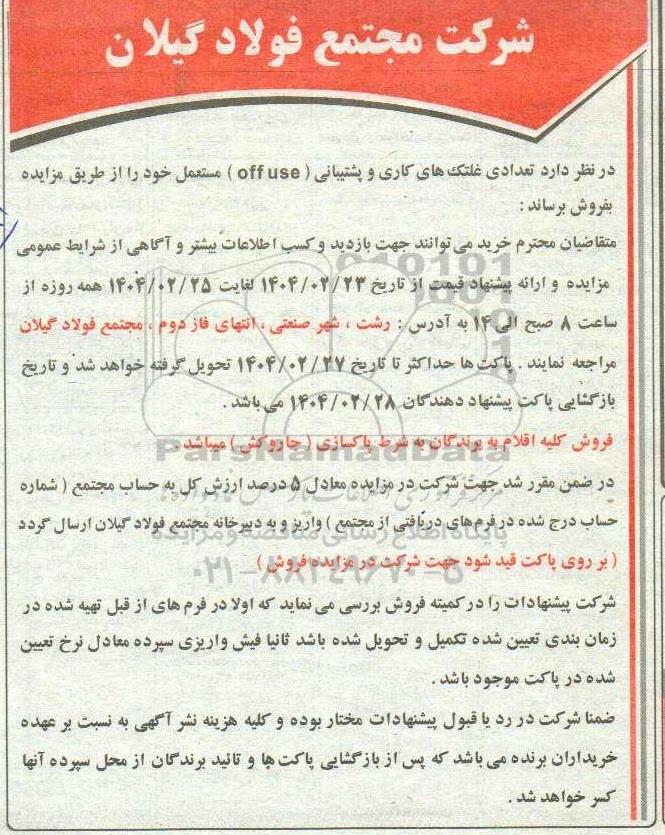 شرکت مجتمع فولاد گیلان
در نظر دارد تعدادی غلتک های کاری و پشتیبانی ( off use ) مستعمل خود را از طریق مزایده
بفروش برساند :
متقاضیان محترم خرید می توانند جهت بازدید و کسب اطلاعات بیشتر و آگاهی از شرایط عمومی
مزایده و ارائه پیشنهاد قیمت از تاریخ ۱۴۰۴/۰۲/۲۳ لغایت ۱۴۰۴/۰۲/۲۵ همه روزه از
ساعت ۸ صبح الی ۱۴ به آدرس : رشت ، شهر صنعتی ، انتهای فاز دوم ، مجتمع فولاد گیلان
مراجعه نمایند . پاکت ها حداکثر تا تاریخ ۱۴۰۴/۰۲/۲۷ تحویل گرفته خواهد شد و تاریخ
بازگشایی پاکت پیشنهاد دهندگان ۱۴۰۴/۰۲/۲۸ می باشد .
فروش کلیه اقلام به برندگان به شرط پاکسازی ( جاروکش ) میباشد .
ParsNamadData
در ضمن مقرر شد جهت شرکت در مزایده معادل ۵ درصد ارزش کل به حساب مجتمع ( شماره
حساب درج شده در فرم های دریافتی از مجتمع ) واریز و به دبیرخانه مجتمع فولاد گیلان ارسال گردد
پایگاه اطلاع رسانی مناقصه و مزایده
( بر روی پاکت قید شود جهت شرکت در مزایده فروش )
۰۲۱-۸۸۳۴۹۶۷۰-۵
شرکت پیشنهادات را در کمیته فروش بررسی می نماید که اولا در فرم های از قبل تهیه شده در
زمان بندی تعیین شده تکمیل و تحویل شده باشد ثانیا فیش واریزی سپرده معادل نرخ تعیین
شده در پاکت موجود باشد .
ضمنا شرکت در رد یا قبول پیشنهادات مختار بوده و کلیه هزینه نشر آگهی به نسبت بر عهده
خریداران برنده می باشد که پس از بازگشایی پاکت ها و تائید برندگان از محل سپرده آنها
کسر خواهد شد .